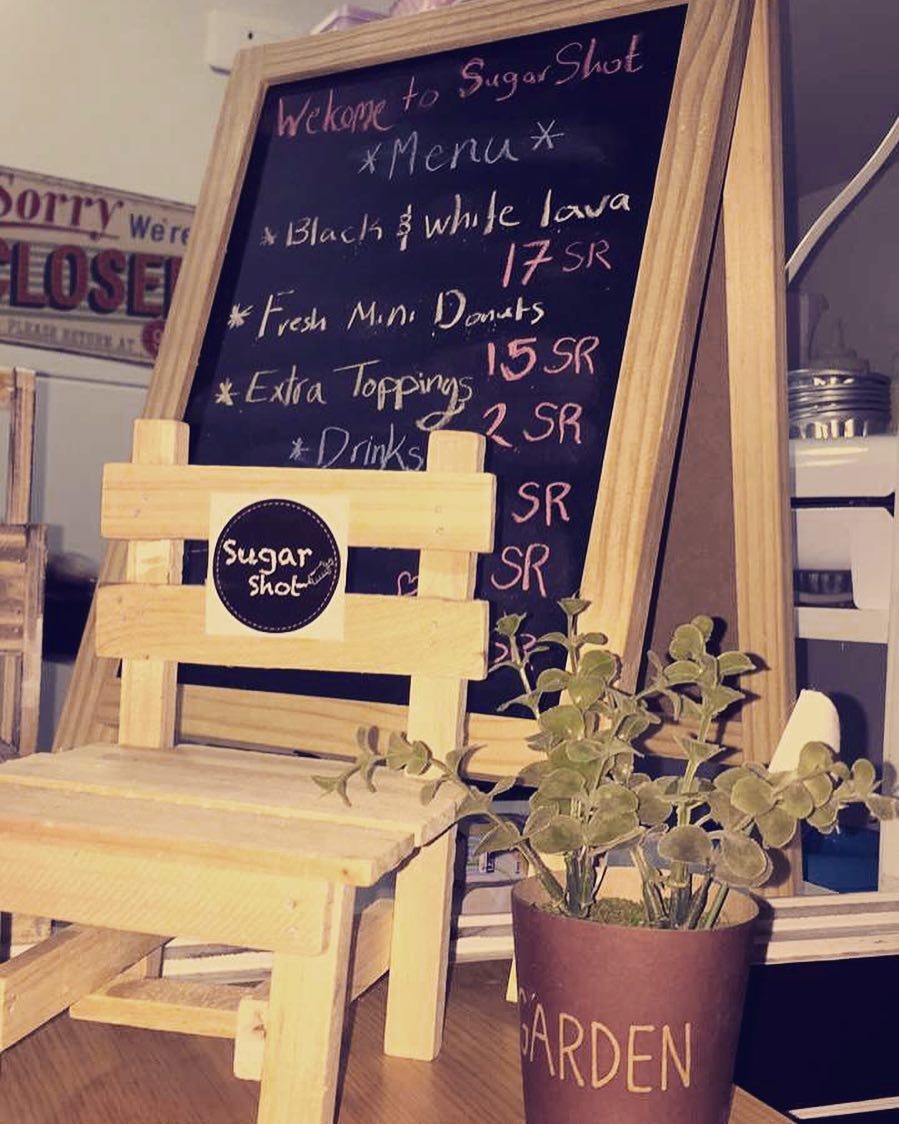 Welcome to SugarShot
*Menu*
*Black & white lava
17 SR
*Fresh Mini Donuts
15 SR
*Extra Toppings
2 SR
*Drinks
SR
SR
SR
Sorry
We're
CLOSED
PLEASE RETURN AT
Sugar
Shot
GARDEN